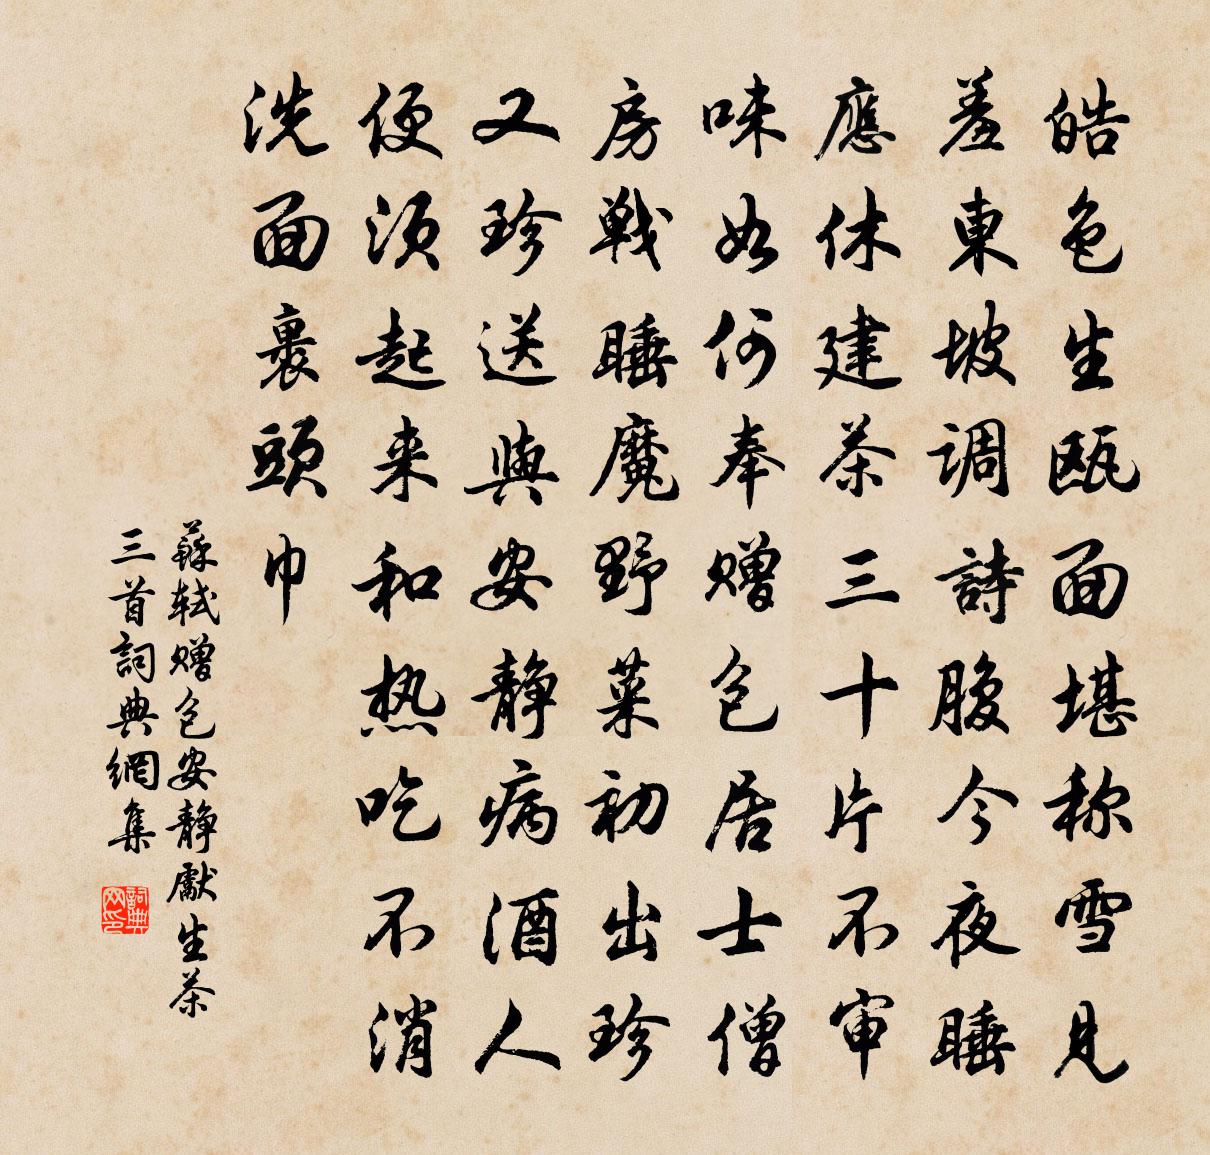 皓色生瓯面堪称雪见
羞東坡调詩腹今夜睡
應休建茶三十片不审
味如何奉赠包居士僧
房戦睡魔野菜初出珍
又珍送與安静病酒人
便须起来和热吃不消
洗面裹頭巾
蘇轼赠包安静獻生茶
三首詞典網集